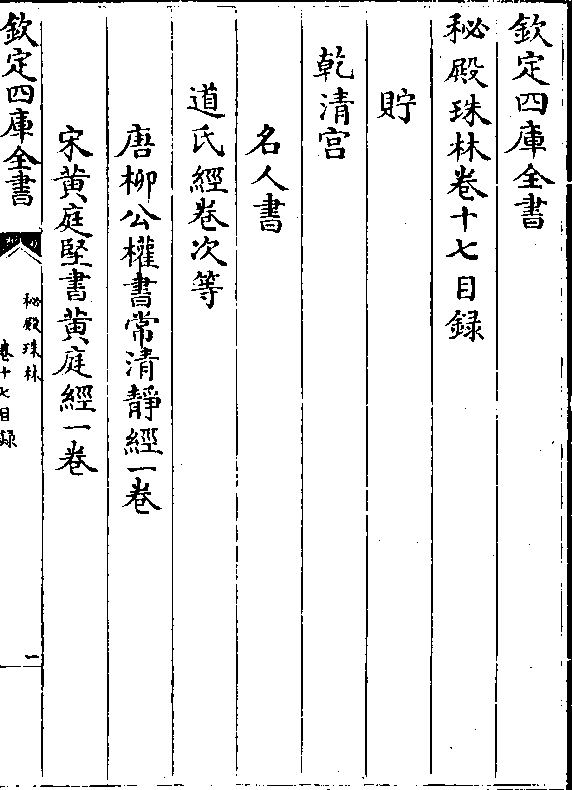 欽定四庫全書
秘殿珠林卷十七目録
貯
乾清宫
名人書
道氏經卷次等
唐柳公權書常清靜經一卷
宋黄庭堅書黄庭經一卷
欽定四庫全書
秘殿珠林
卷十七目録
一